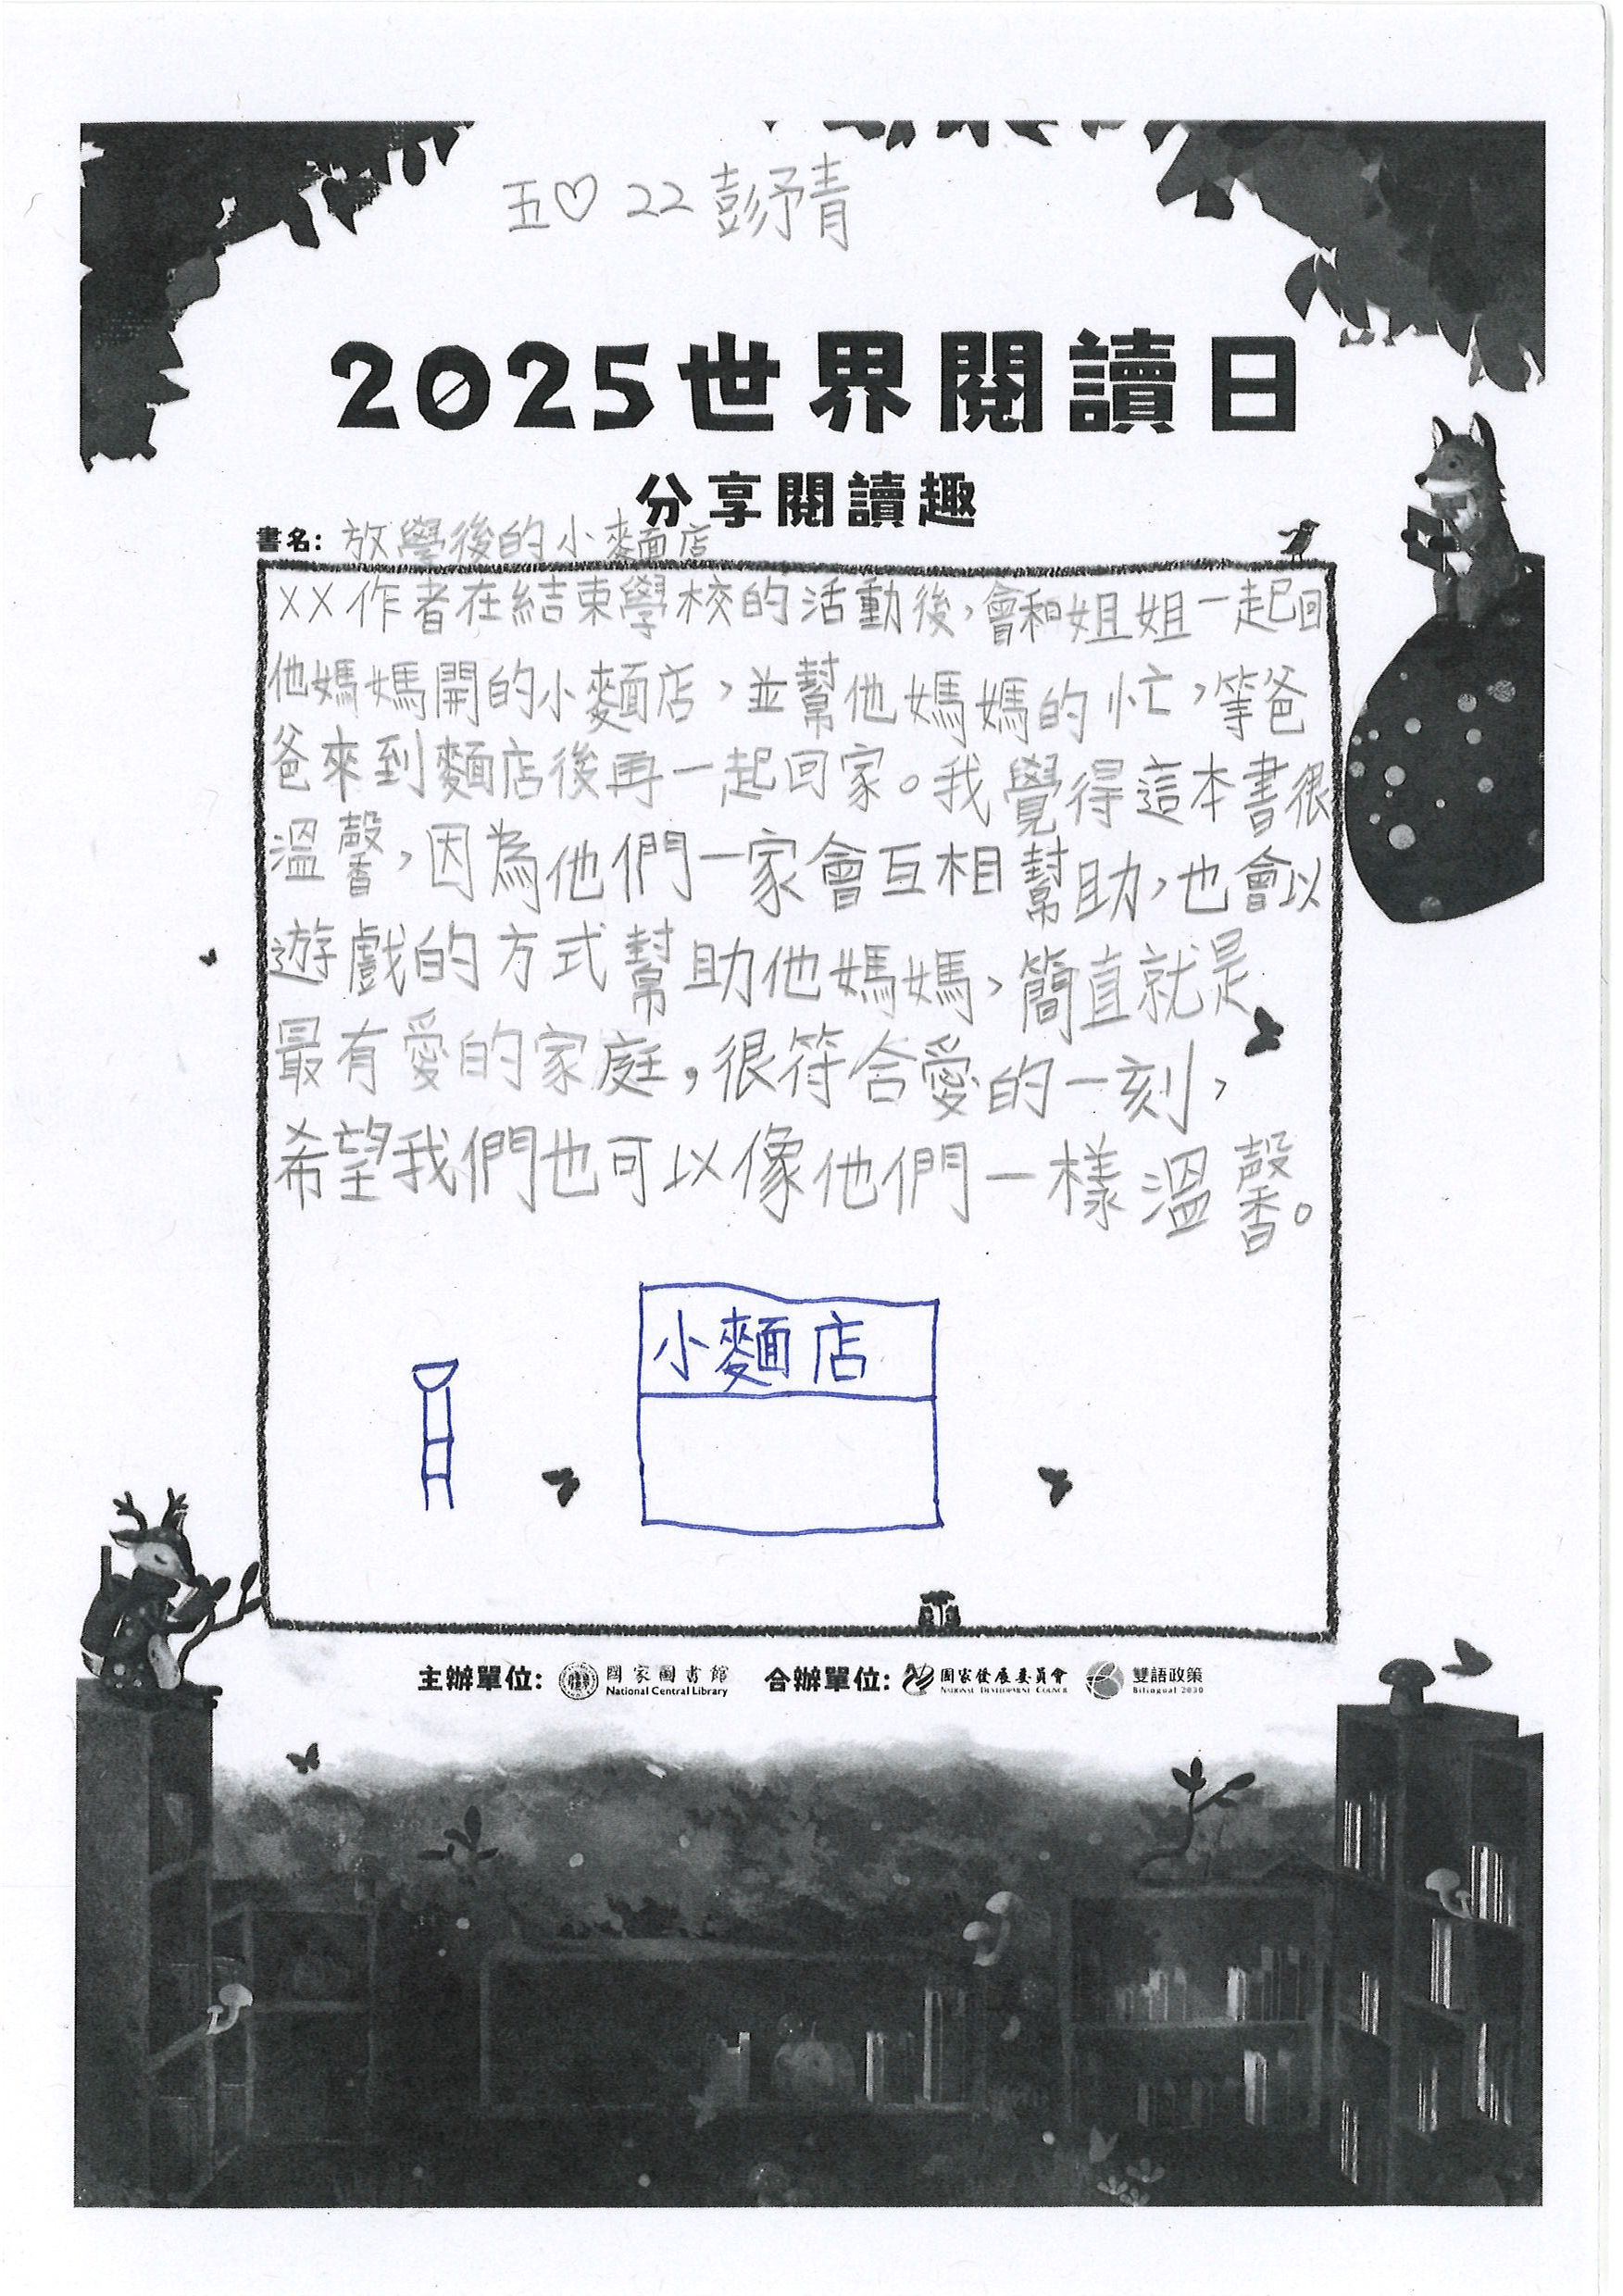 五♡ 22 彭予青
2025世界閱讀日
分享閱讀趣
書名: 放學後的小麵店
××作者在結束學校的活動後，會和姐姐一起回
他媽媽開的小麵店，並幫他媽媽的忙，等爸
爸來到麵店後再一起回家。我覺得這本書很
溫馨，因為他們一家會互相幫助，也會以
遊戲的方式幫助他媽媽，簡直就是
最有愛的家庭，很符合愛的一刻，
希望我們也可以像他們一樣溫馨。
小麵店
主辦單位: 國家圖書館 National Central Library 合辦單位: 國家發展委員會 NATIONAL DEVELOPMENT COUNCIL 雙語政策 Bilingual 2030